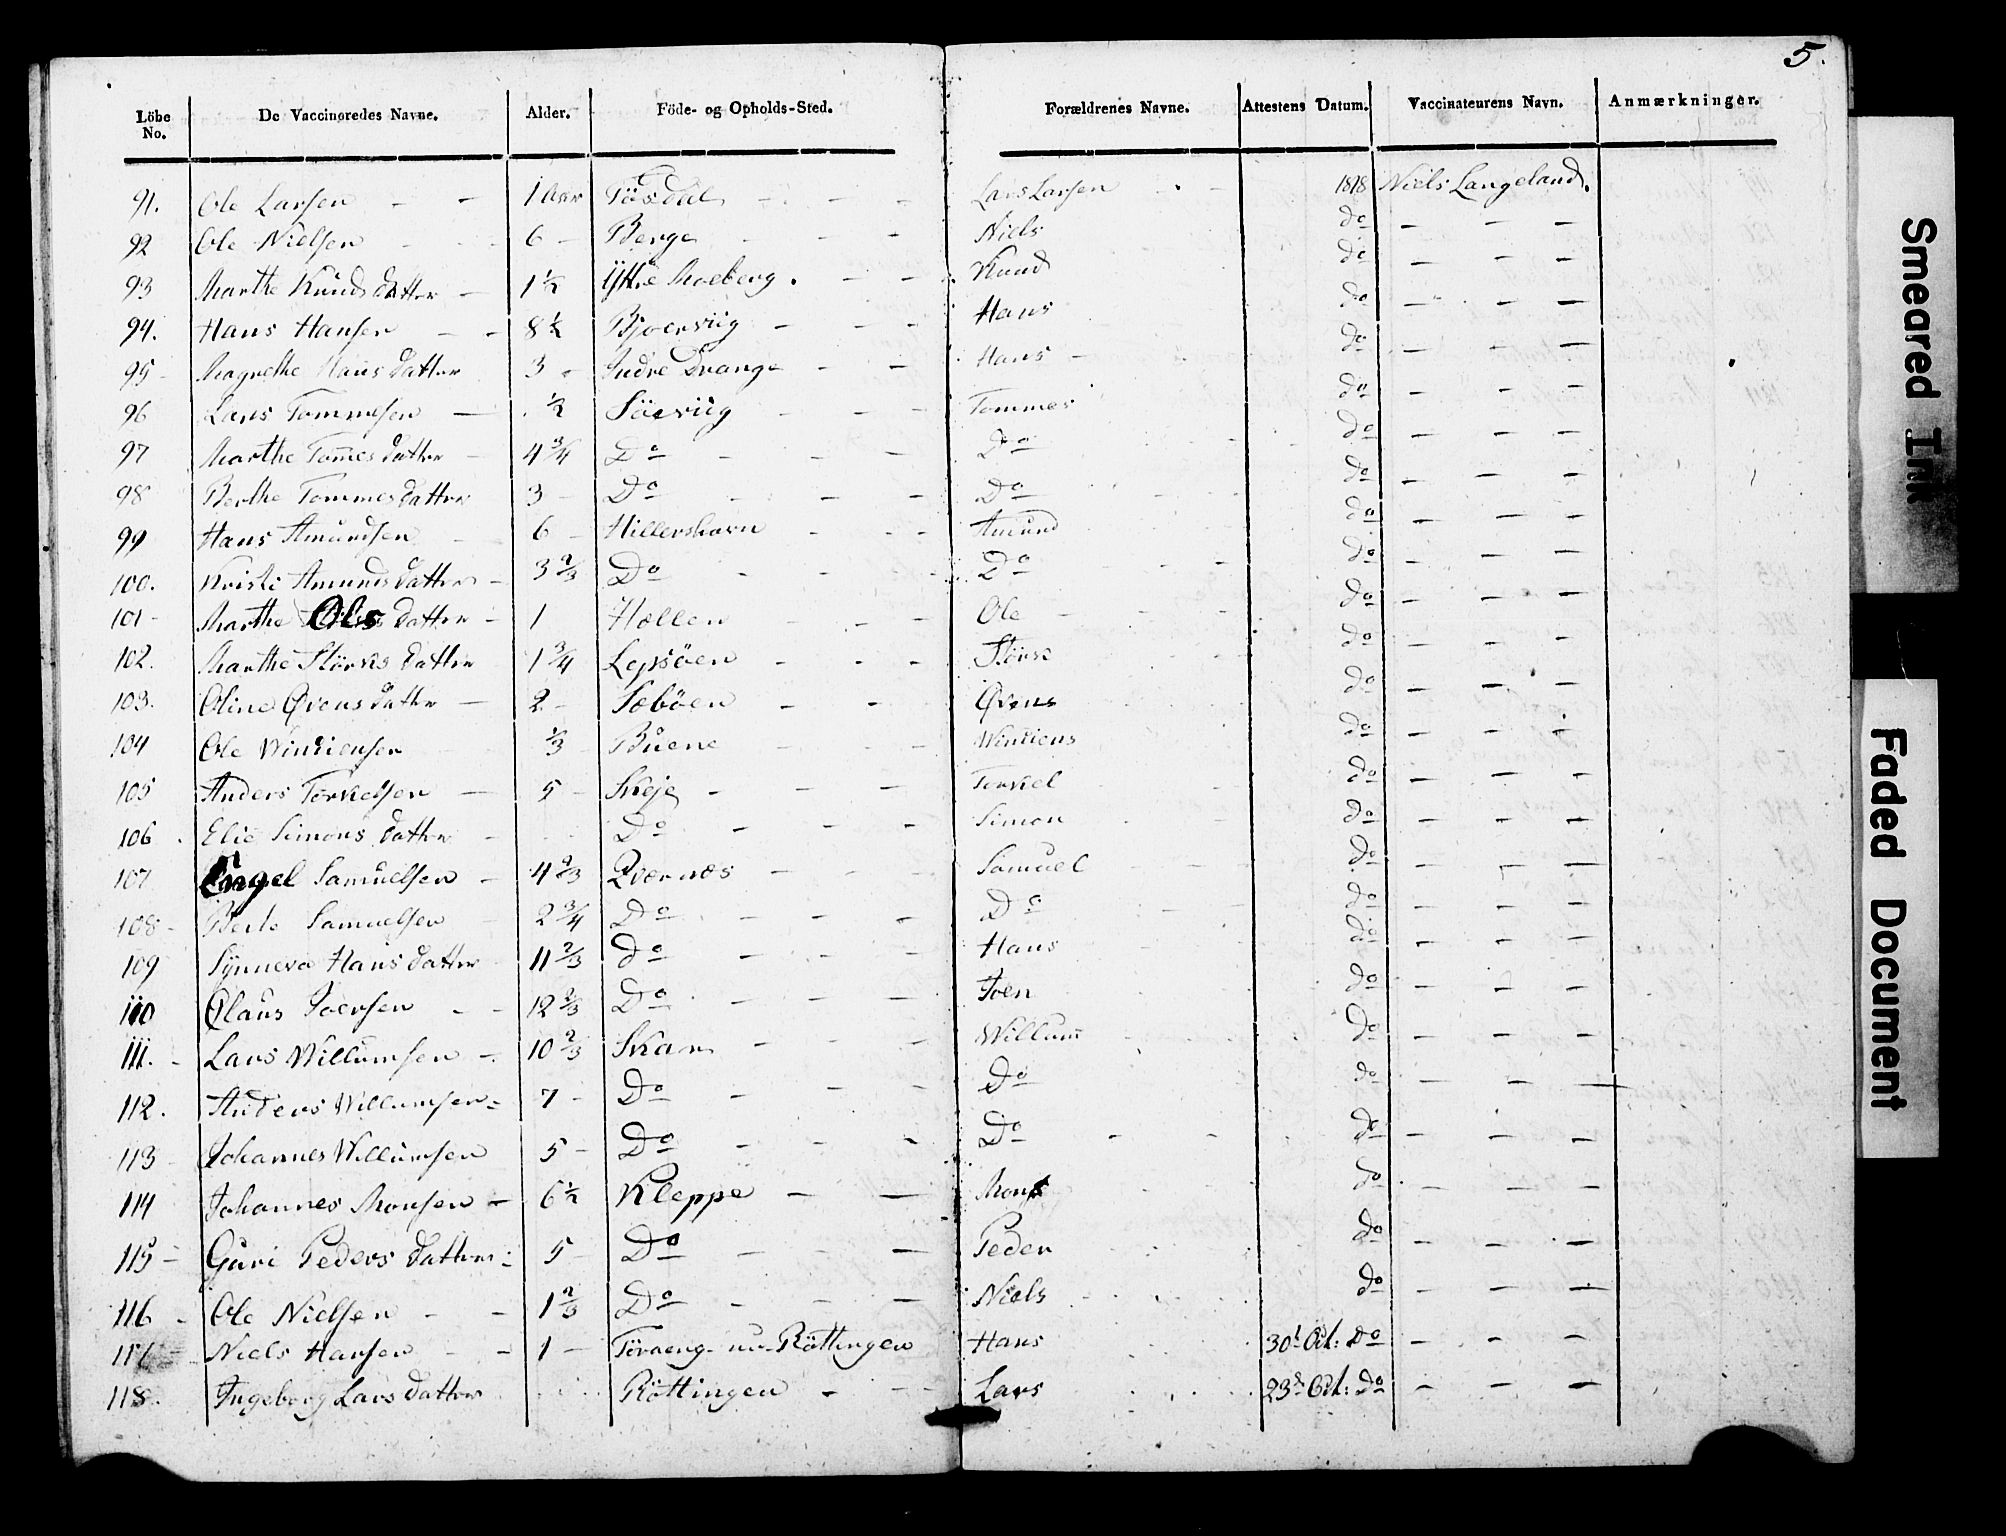 5.
Löbe No. De Vaccineredes Navne. Alder. Föde- og Opholds-Sted. Forældrenes Navne. Attestens Datum. Vaccinateurens Navn. Anmærkninger.
91. Ole Larsen - - 1 Aar - - - Lars Larsen - - 1818 Niels Langeland.
92 Ole Nielsen - - 6 - Berge - - - Niels do - - -
93 Marthe Knudsdatter - 1½ Ytre Moeberg. - - Knud do - - -
94. Hans Hansen - - 8½ Bjoerviig - - - Hans do - - -
95 - Magrethe Hansdatter 3 - Indre Drange - - Hans - do - - -
96 Lars Tommesen - ½ Söeviig - - - Tommes do - - -
97 Marthe Tom̅esdatter - 4¾ Do - - - Do do - - -
98 Berthe Tommesdatter 3 - Do - - - Do do - - -
99 Hans Amundsen - 6 - Hillershavn - - - Amund do - - -
100. Kristi Amundsdatter - 3⅔ Do - - - Do - - do - - -
101 - Marthe Olsdatter - 1 Hællen - - - Ole - - - do - - -
102. Marthe Störksdatter 1¾ Lepsöen - - - do - - -
103. Oline Øvensdatter - 2 - Sæböen - - Øvens do - - -
104 Ole ⅓ Buene - - - do - - -
105 Anders Torkelsen - 5 - Skeje - - - Torkel do - - -
106 Elie Simonsdatter - Do - - - Simon do - - -
107 Engel Samuelsen - 4⅔ Qværnæs - - Samuel do - - -
108 - Berte Samuelsen 2¾ Do - - - Do - - do - - -
109 Synneva Hansdatter 11⅔ do - - - Hans do - - -
110 Olaus Joensen - - 12⅔ Do - - - Joen do - - -
111. - Lars Willumsen - 10⅔ Skar - - - Willum do - - -
112. Anders Willumsen - 7 - Do - - - Do do - - -
113 - Johannes Willumsen 5 - Do - - - Do - - do - - -
114 Johannes Monsen - 6½ Kleppe - - Mons do - - -
115 - Guri Pedersdatter - 5 Do - - - Peder do - - -
116 - Ole Nielsen - - 1⅔ Do - - - Niels do - - -
117 Niels Hansen - - 1 - Röttingen Hans 30t Oct: Do - - -
118. Ingeborg Larsdatter Röttingen - - - Lars 23d Oct: Do - - -
Smeared Ink
Faded Document